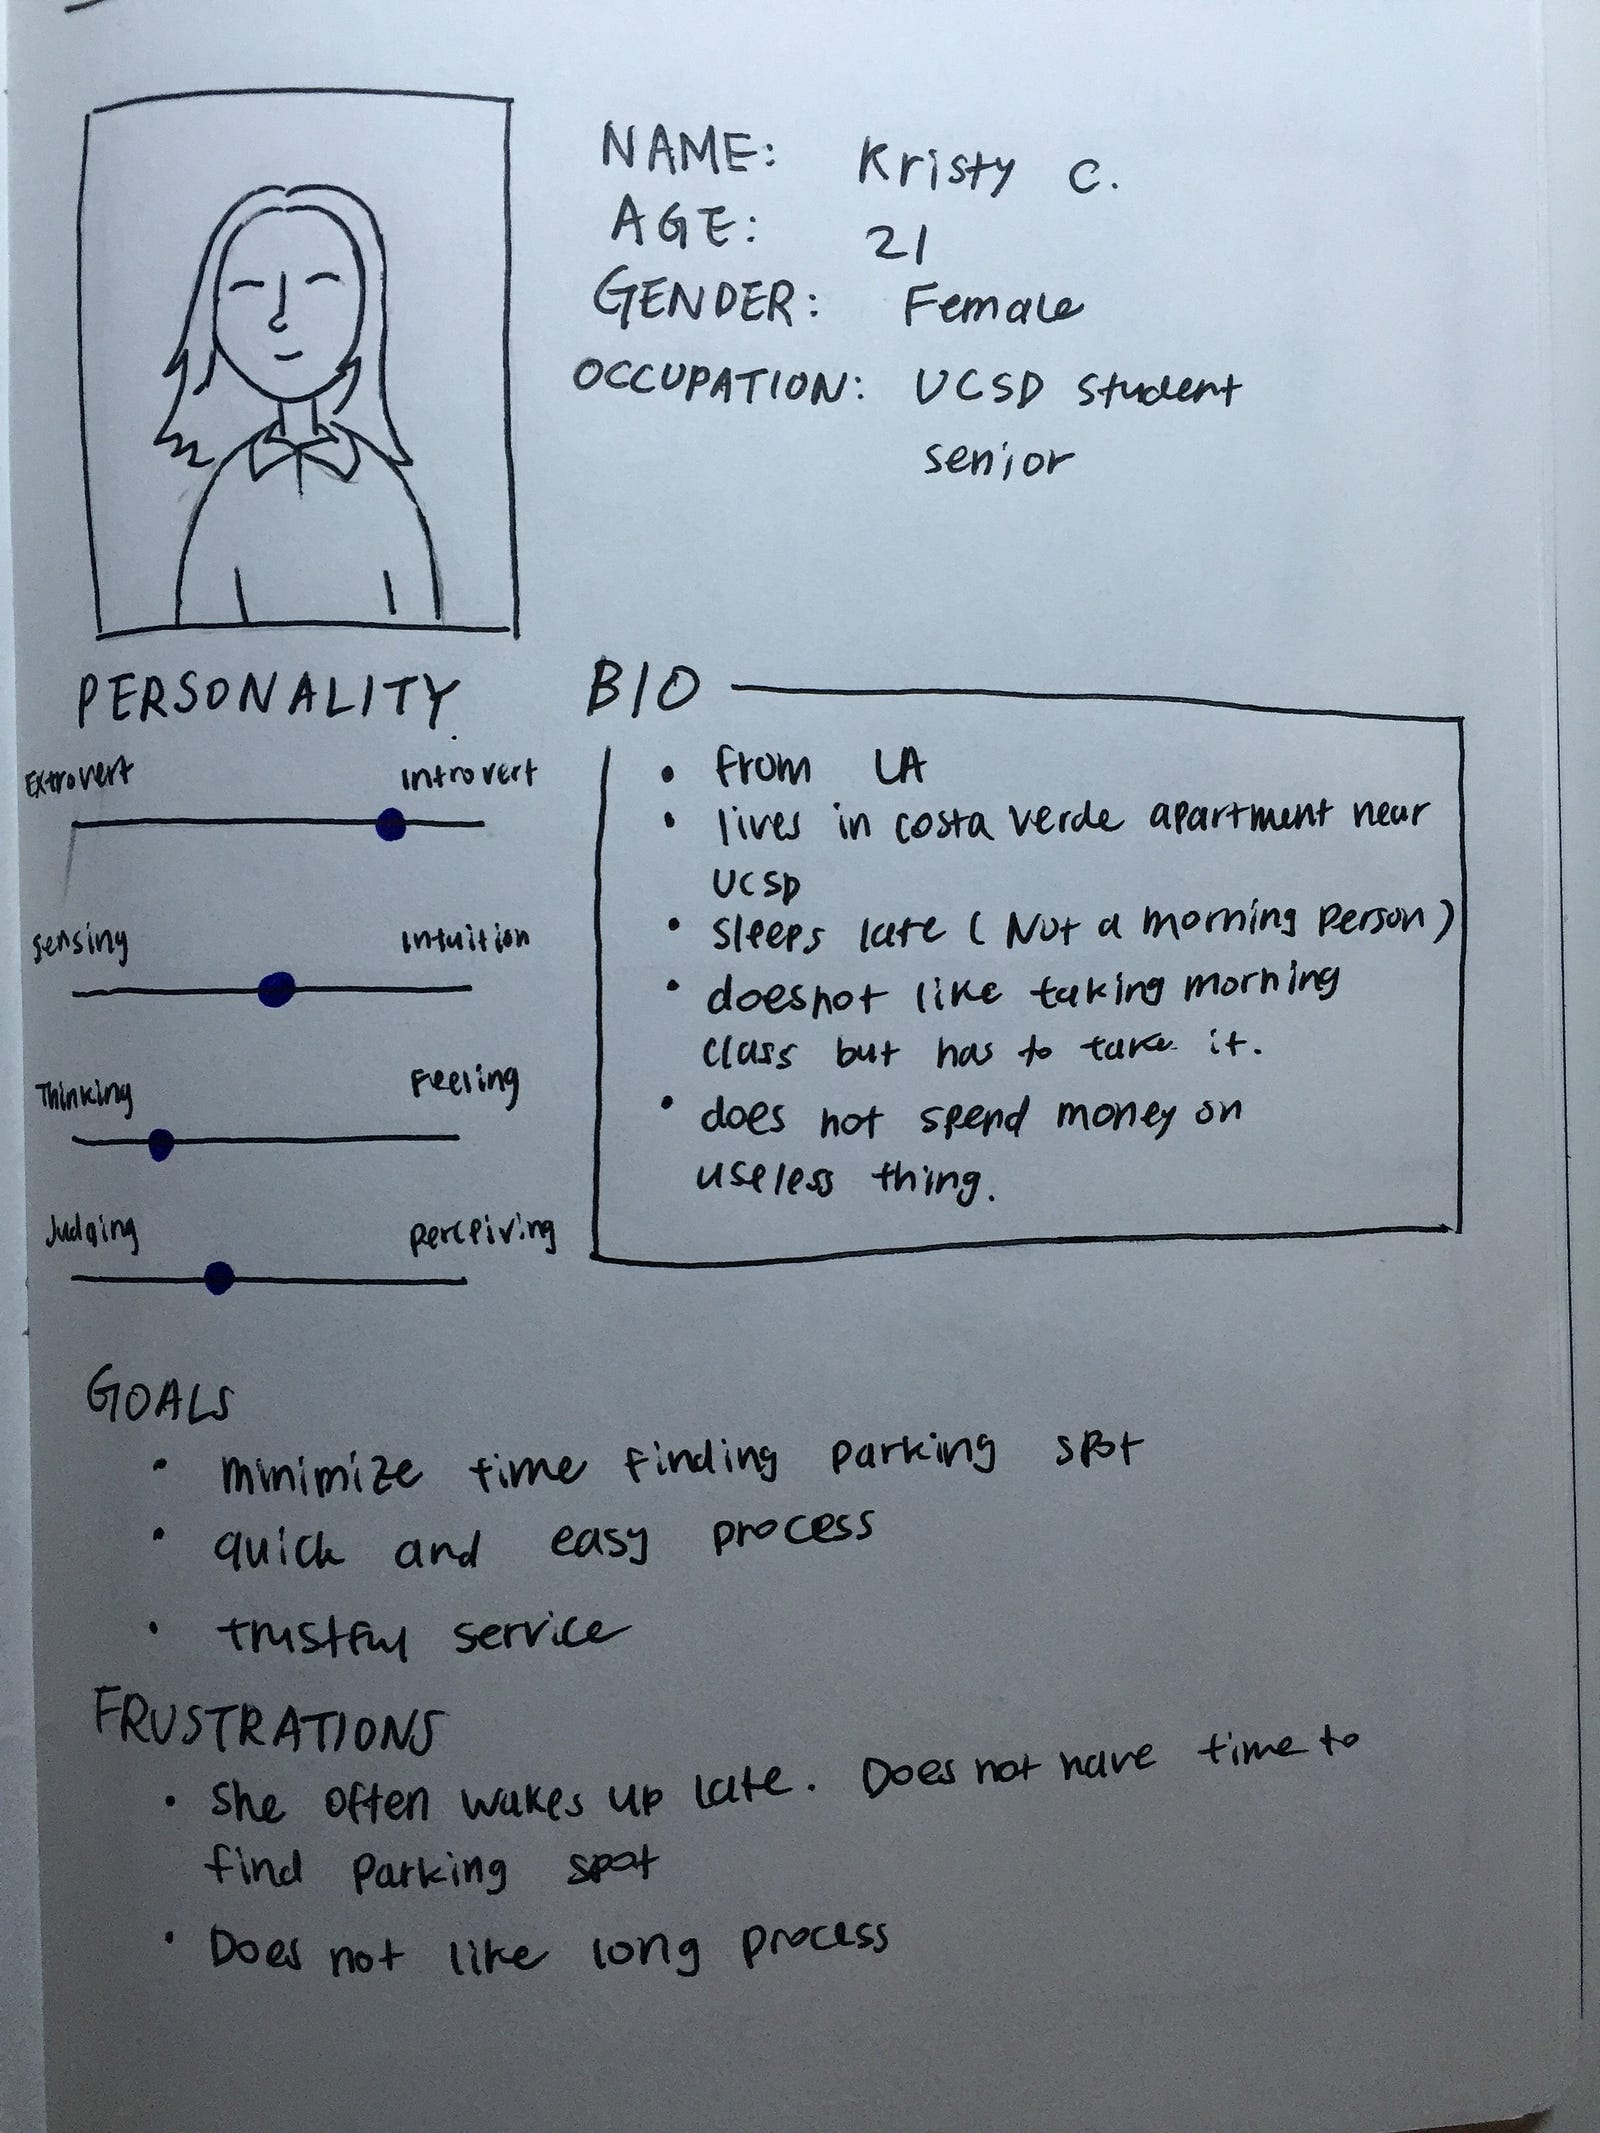 NAME: Kristy C.
AGE: 21
GENDER: Female
OCCUPATION: UCSD Student
senior
PERSONALITY
Extrovert Introvert
Sensing Intuition
Thinking Feeling
Judging Perceiving
BIO
• from LA
• lives in costa verde apartment near
UCSD
• sleeps late ( Not a morning person )
• doesnot like taking morning
class but has to take it.
• does not spend money on
useless thing.
GOALS
• minimize time finding parking spot
• quick and easy process
• trustful service
FRUSTRATIONS
• She often wakes up late. Does not have time to
find parking spot
• Does not like long process